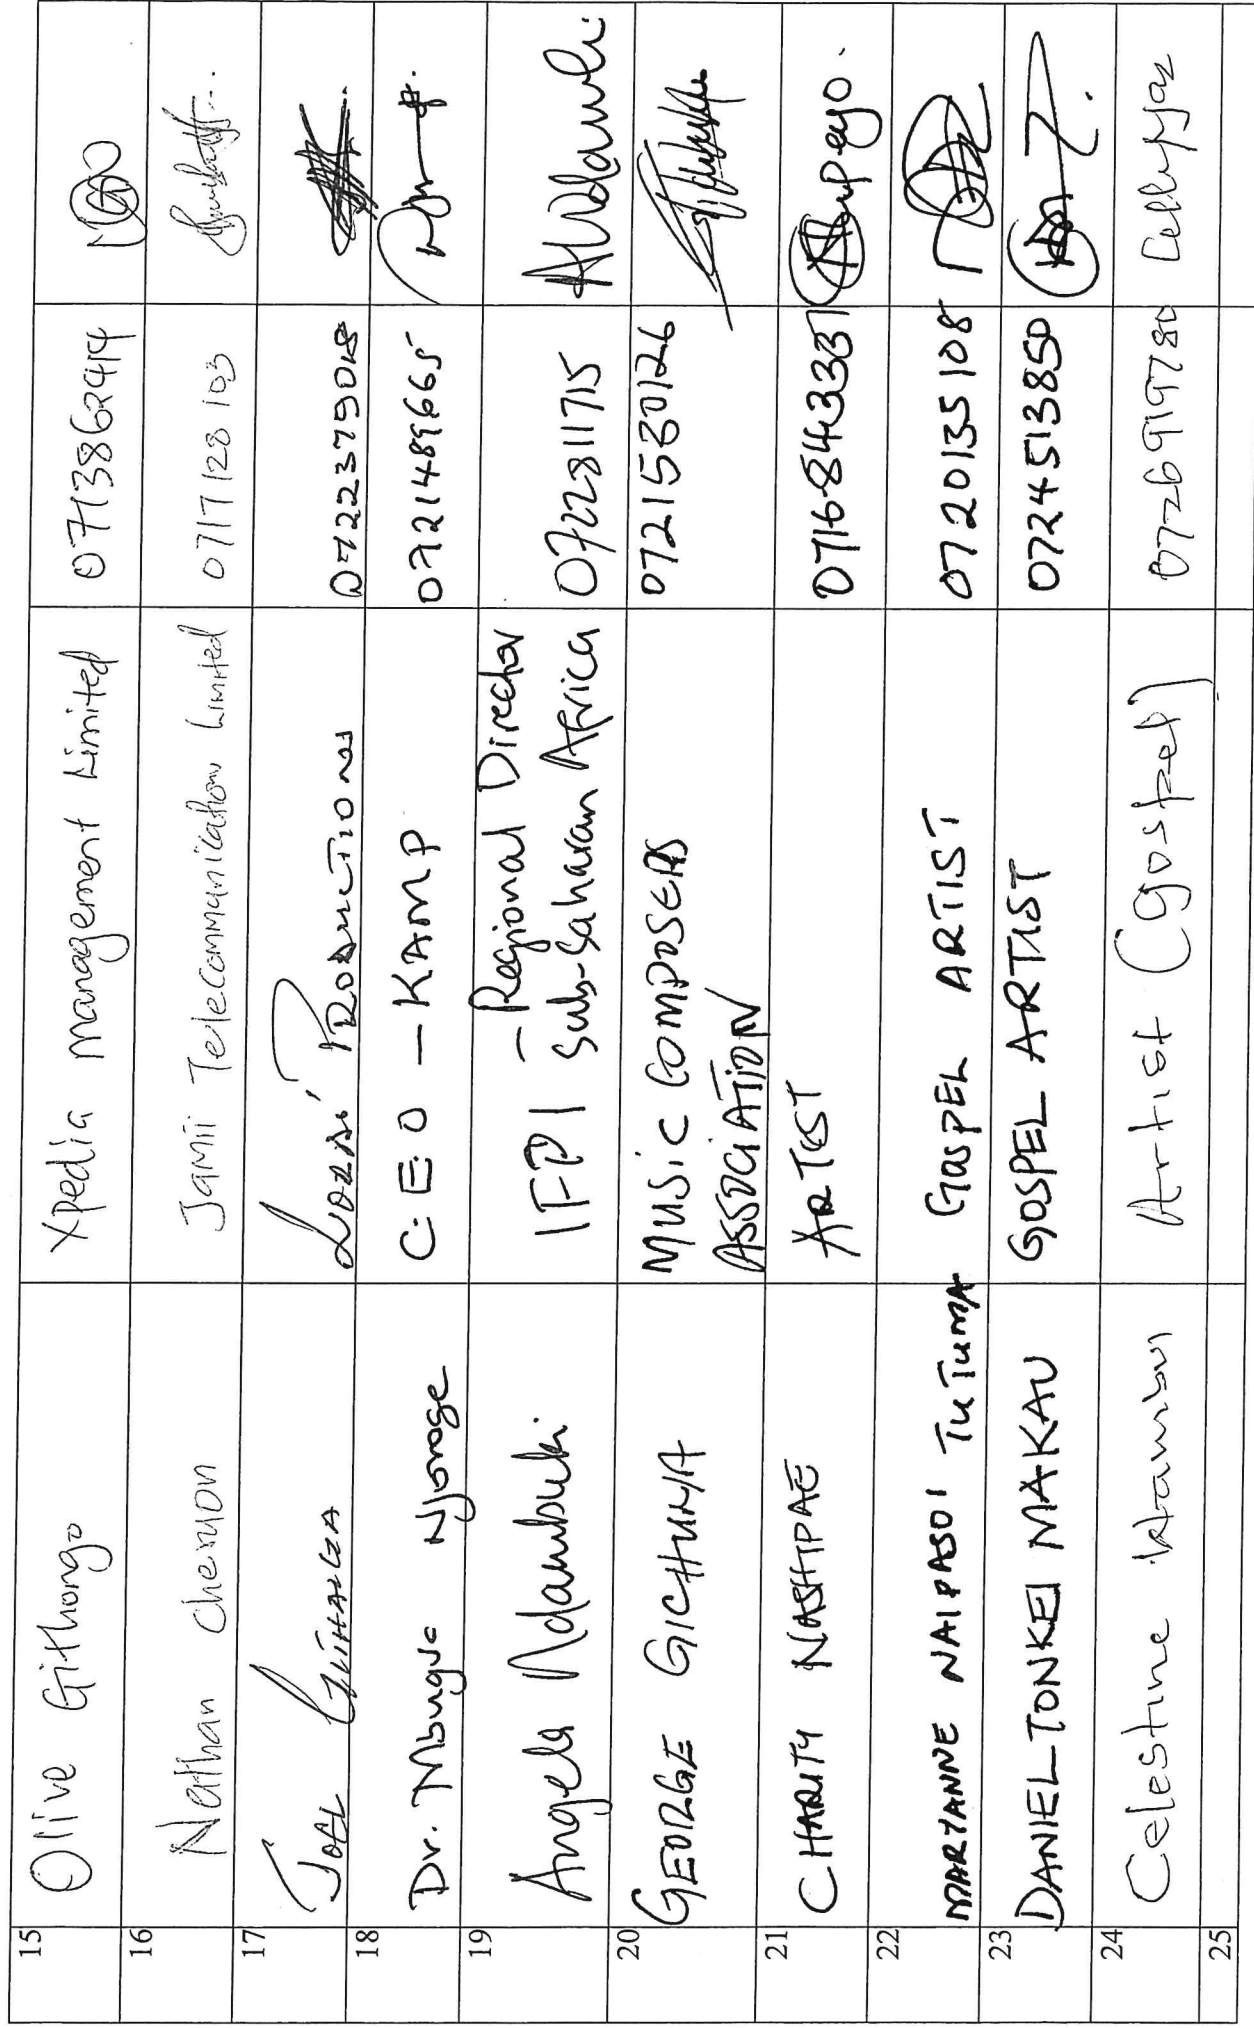 15 Olive Githongo Xpedia Management Limited 0713862414
16 Nathan Cheruon Jamii Telecommunication Limited 0717128103
17 JOEL PRODUCTIONS 0722375018
18 Dr. Mbugua Njoroge C.E.O - KAMP 0721489665
19 Angela Ndambuki IFPI - Regional Director
Sub-Saharan Africa 0722811715 ANdambuki
20 GEORGE GICHUHA MUSIC COMPOSERS
ASSOCIATION 0721530126
21 CHARITY NASHIPAE ARTIST 0716843337
22 MARYANNE NAIPASOI TUTUMA GOSPEL ARTIST 0720135108
23 DANIEL TONKEI MAKAU GOSPEL ARTIST 0724513850
24 Celestine Artist (gospel)
25